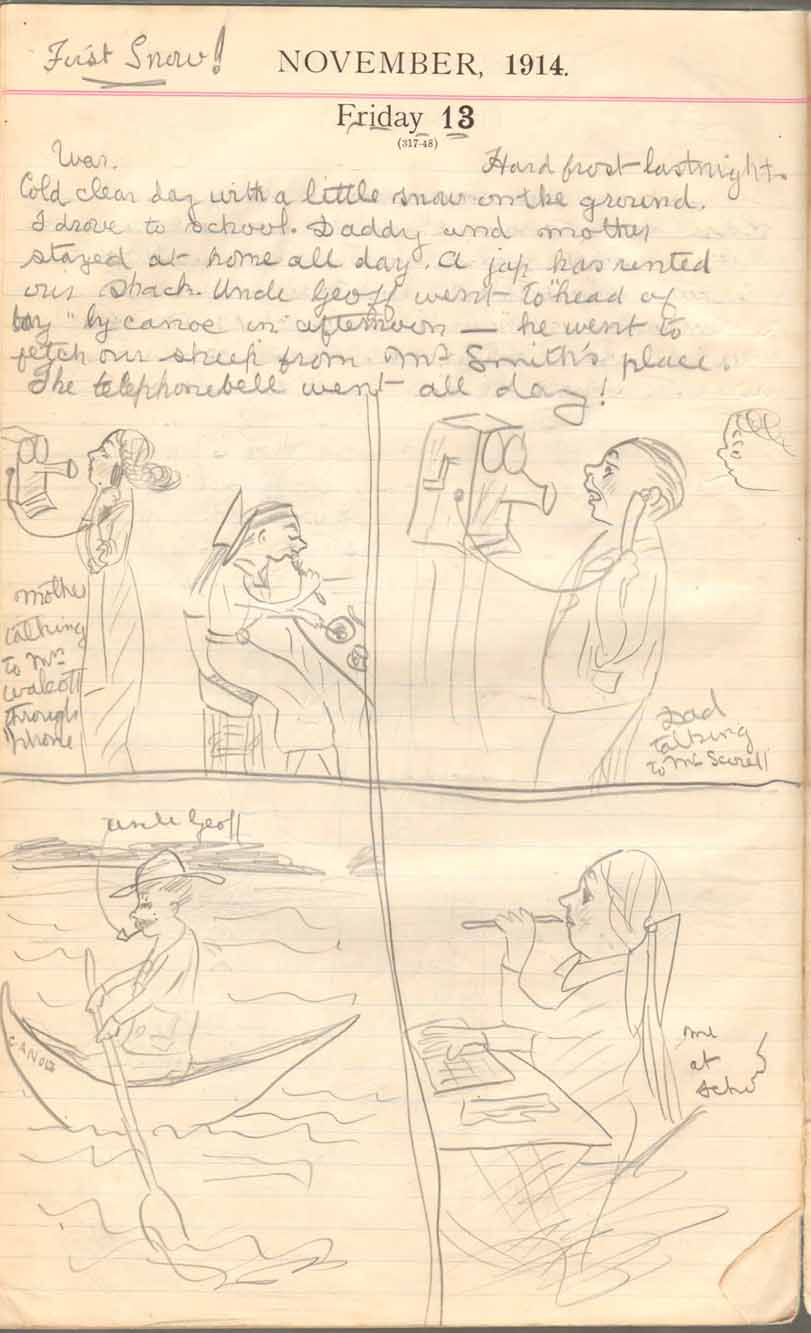 First Snow!
NOVEMBER, 1914.
Friday 13
(317-48)
War.
Hard frost last night.
Cold clear day with a little snow on the ground.
I drove to school. Daddy and mother
stayed at home all day. A jap has rented
our shack. Uncle Geoff went to "head of
bay" by canoe in afternoon — he went to
fetch our sheep from Mr Smith's place.
The telephone bell went all day!
Mother
talking
to Mrs
Walcott
through
'phone
Dad
talking
to Mr
Uncle Geoff
CANOE
me
at